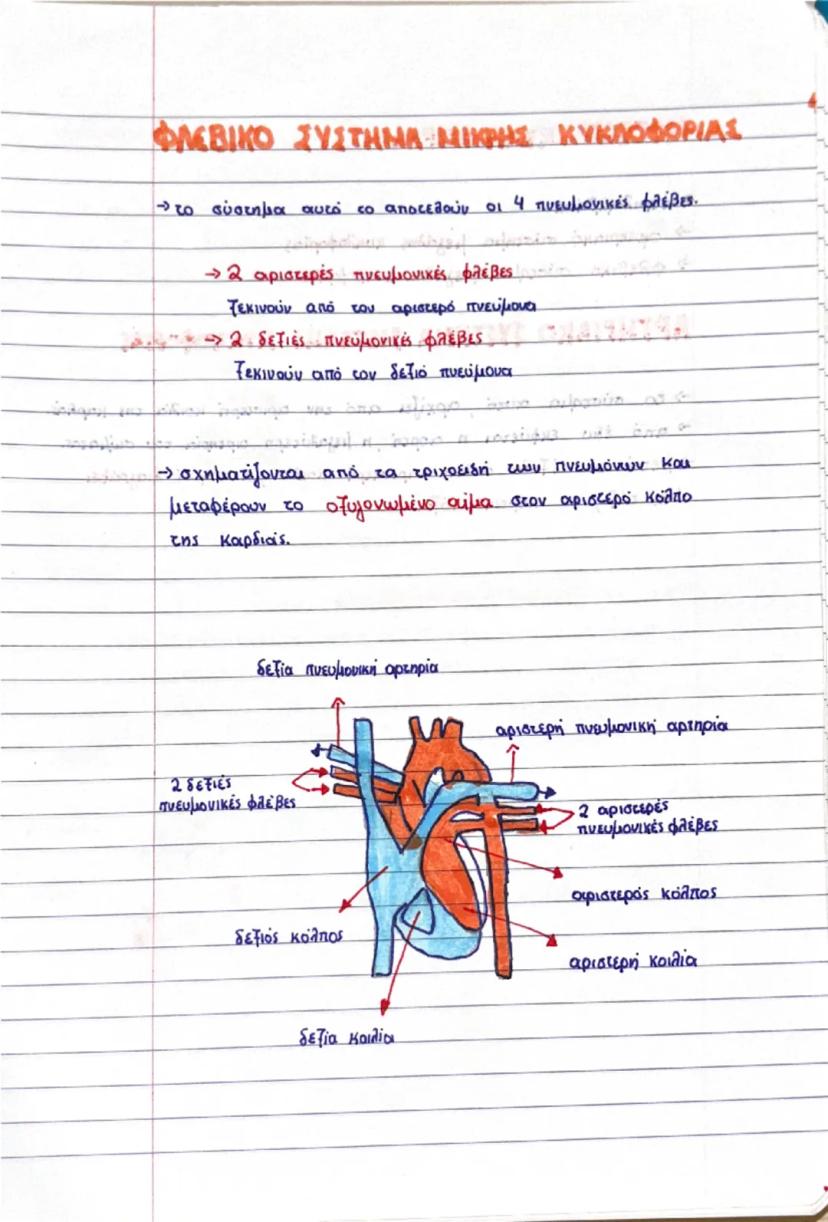 ΦΛΕΒΙΚΟ ΣΥΣΤΗΜΑ ΜΙΚΡΗΣ ΚΥΚΛΟΦΟΡΙΑΣ
→ το σύστημα αυτό το αποτελούν οι 4 πνευμονικές φλέβες.
→ 2 αριστερές πνευμονικές φλέβες
ξεκινούν από τον αριστερό πνεύμονα
→ 2 δεξιές πνευμονικές φλέβες
ξεκινούν από τον δεξιό πνεύμονα
→ σχηματίζονται από τα τριχοειδή των πνευμόνων και
μεταφέρουν το οξυγονωμένο αίμα στον αριστερό κόλπο
της καρδιάς.
δεξία πνευμονική αρτηρία
αριστερή πνευμονική αρτηρία
2 δεξιές
πνευμονικές φλέβες
2 αριστερές
πνευμονικές φλέβες
αριστερός κόλπος
δεξιός κόλπος
αριστερή κοιλία
δεξία κοιλία